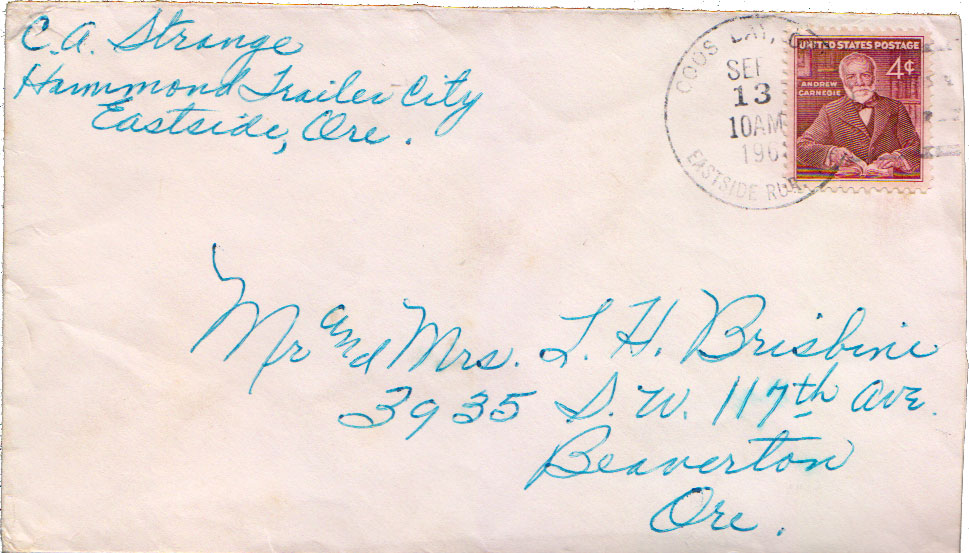 C.A. Strange
Hammond Trailer City
Eastside, Ore.
COOS BAY,
SEP
13
10AM
196
EASTSIDE RUR.
UNITED STATES POSTAGE
4¢
ANDREW
CARNEGIE
Mr and Mrs. L. H. Brisbine
3935 S.W. 117th Ave.
Beaverton
Ore.